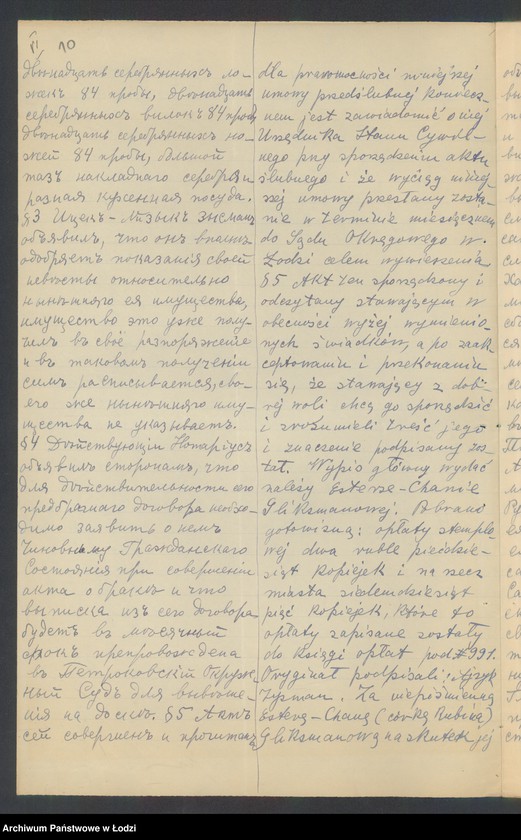 VI 10
двѣнадцать серебрянныхъ ло-
жекъ 84 пробы, двѣнадцать
серебрянныхъ вилокъ 84 пробы
двѣнадцать серебрянныхъ но-
жей 84 пробы, большой
тазъ накладнаго серебра и
разная кухонная посуда.
§3 Ицекъ-Айзыкъ Зисманъ
объявилъ, что онъ вполнѣ
одобряетъ показанія своей
невѣсты относительно
нынѣшняго ея имущества,
имущество это уже полу-
чилъ въ своё разпоряженіе
и въ таковомъ полученіи
симъ расписывается, сво-
его же нынѣшняго иму-
щества не указываетъ.
§4 Дѣйствующій Нотаріусъ
объявилъ сторонамъ, что
для дѣйствительности его
предбрачнаго договора необхо-
димо заявить о немъ
Чиновнику Гражданскаго
Состоянія при совершеніи
акта о бракѣ и что
выписка изъ сего договора
будетъ въ мѣсячный
срокъ препровождена
въ Петроковскій Окруж-
ный Судъ для вывѣше-
нія на доскѣ. §5 Актъ
сей совершенъ и прочитанъ
dla prawomocności niniejszej
umowy przedślubnej koniecz-
nem jest zawiadomić o niej
Urzędnika Stanu Cywil-
nego przy sporządzeniu aktu
ślubnego i że wyciąg niniej-
szej umowy przesłany zosta-
nie w terminie miesięcznem
do Sądu Okręgowego w
Łodzi celem wywieszenia
§5 Akt ten sporządzony i
odczytany stawającym w
obecności wyżej wymienio-
nych świadków, a po zaak-
ceptowaniu i przekonaniu
się, że stawający z dob-
rej woli chcą go sporządzić
i zrozumieli treść jego
i znaczenie podpisany zos-
tał. Wypis główny wydać
należy Esterze-Chanie
Gliksmanowej. Pobrano
gotowizną: opłaty stemplo-
wej dwa ruble piećdzie-
siąt kopiejek i na rzecz
miasta siedemdziesiąt
pięć kopiejek, które to
opłaty zapisane zostały
do księgi opłat pod # 991.
Oryginał podpisali: Ajzyk
Zysman. Za niepiśmienną
Esterą-Chaną (córką Rubina)
Gliksmanową na skutek jej
Archiwum Państwowe w Łodzi